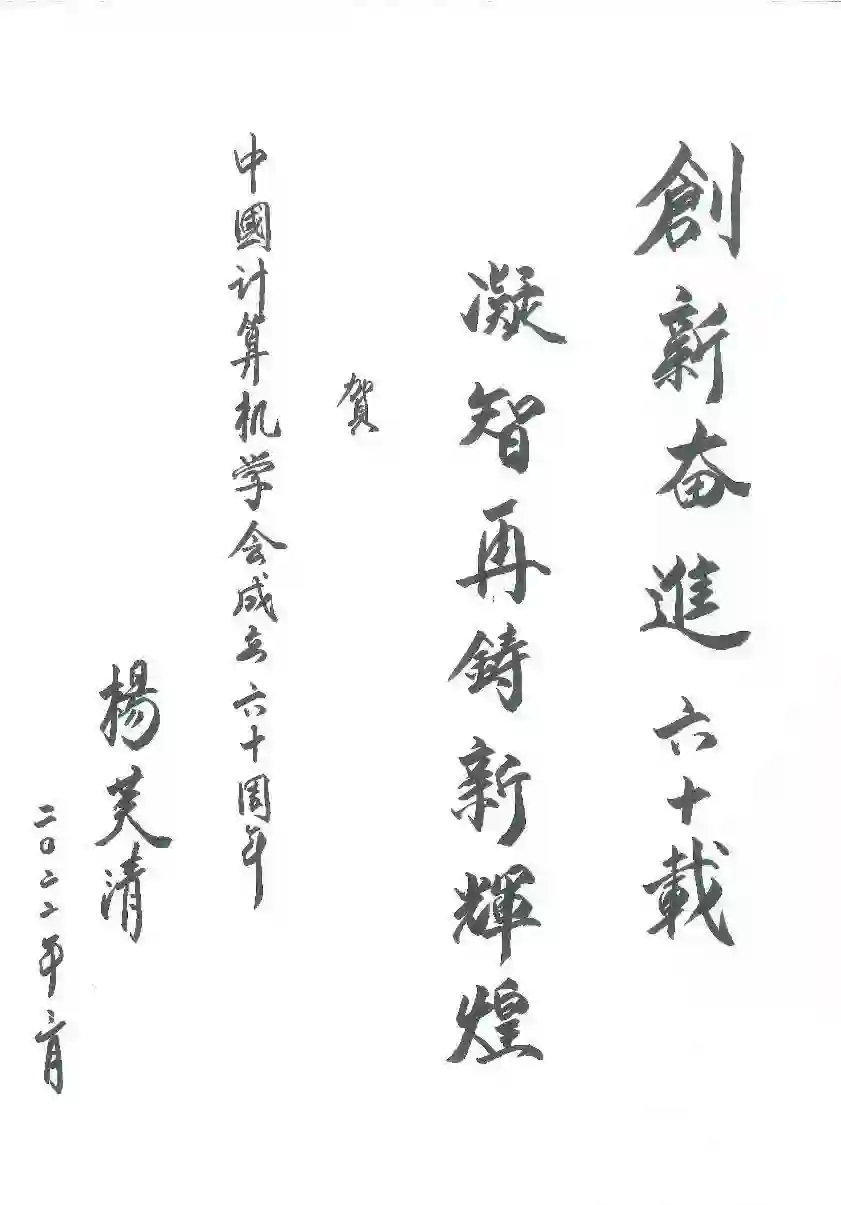 創新奋進六十載
凝智再鋳新輝煌
賀
中國计算机学会成立六十周年
楊芙清
二〇二二年二月